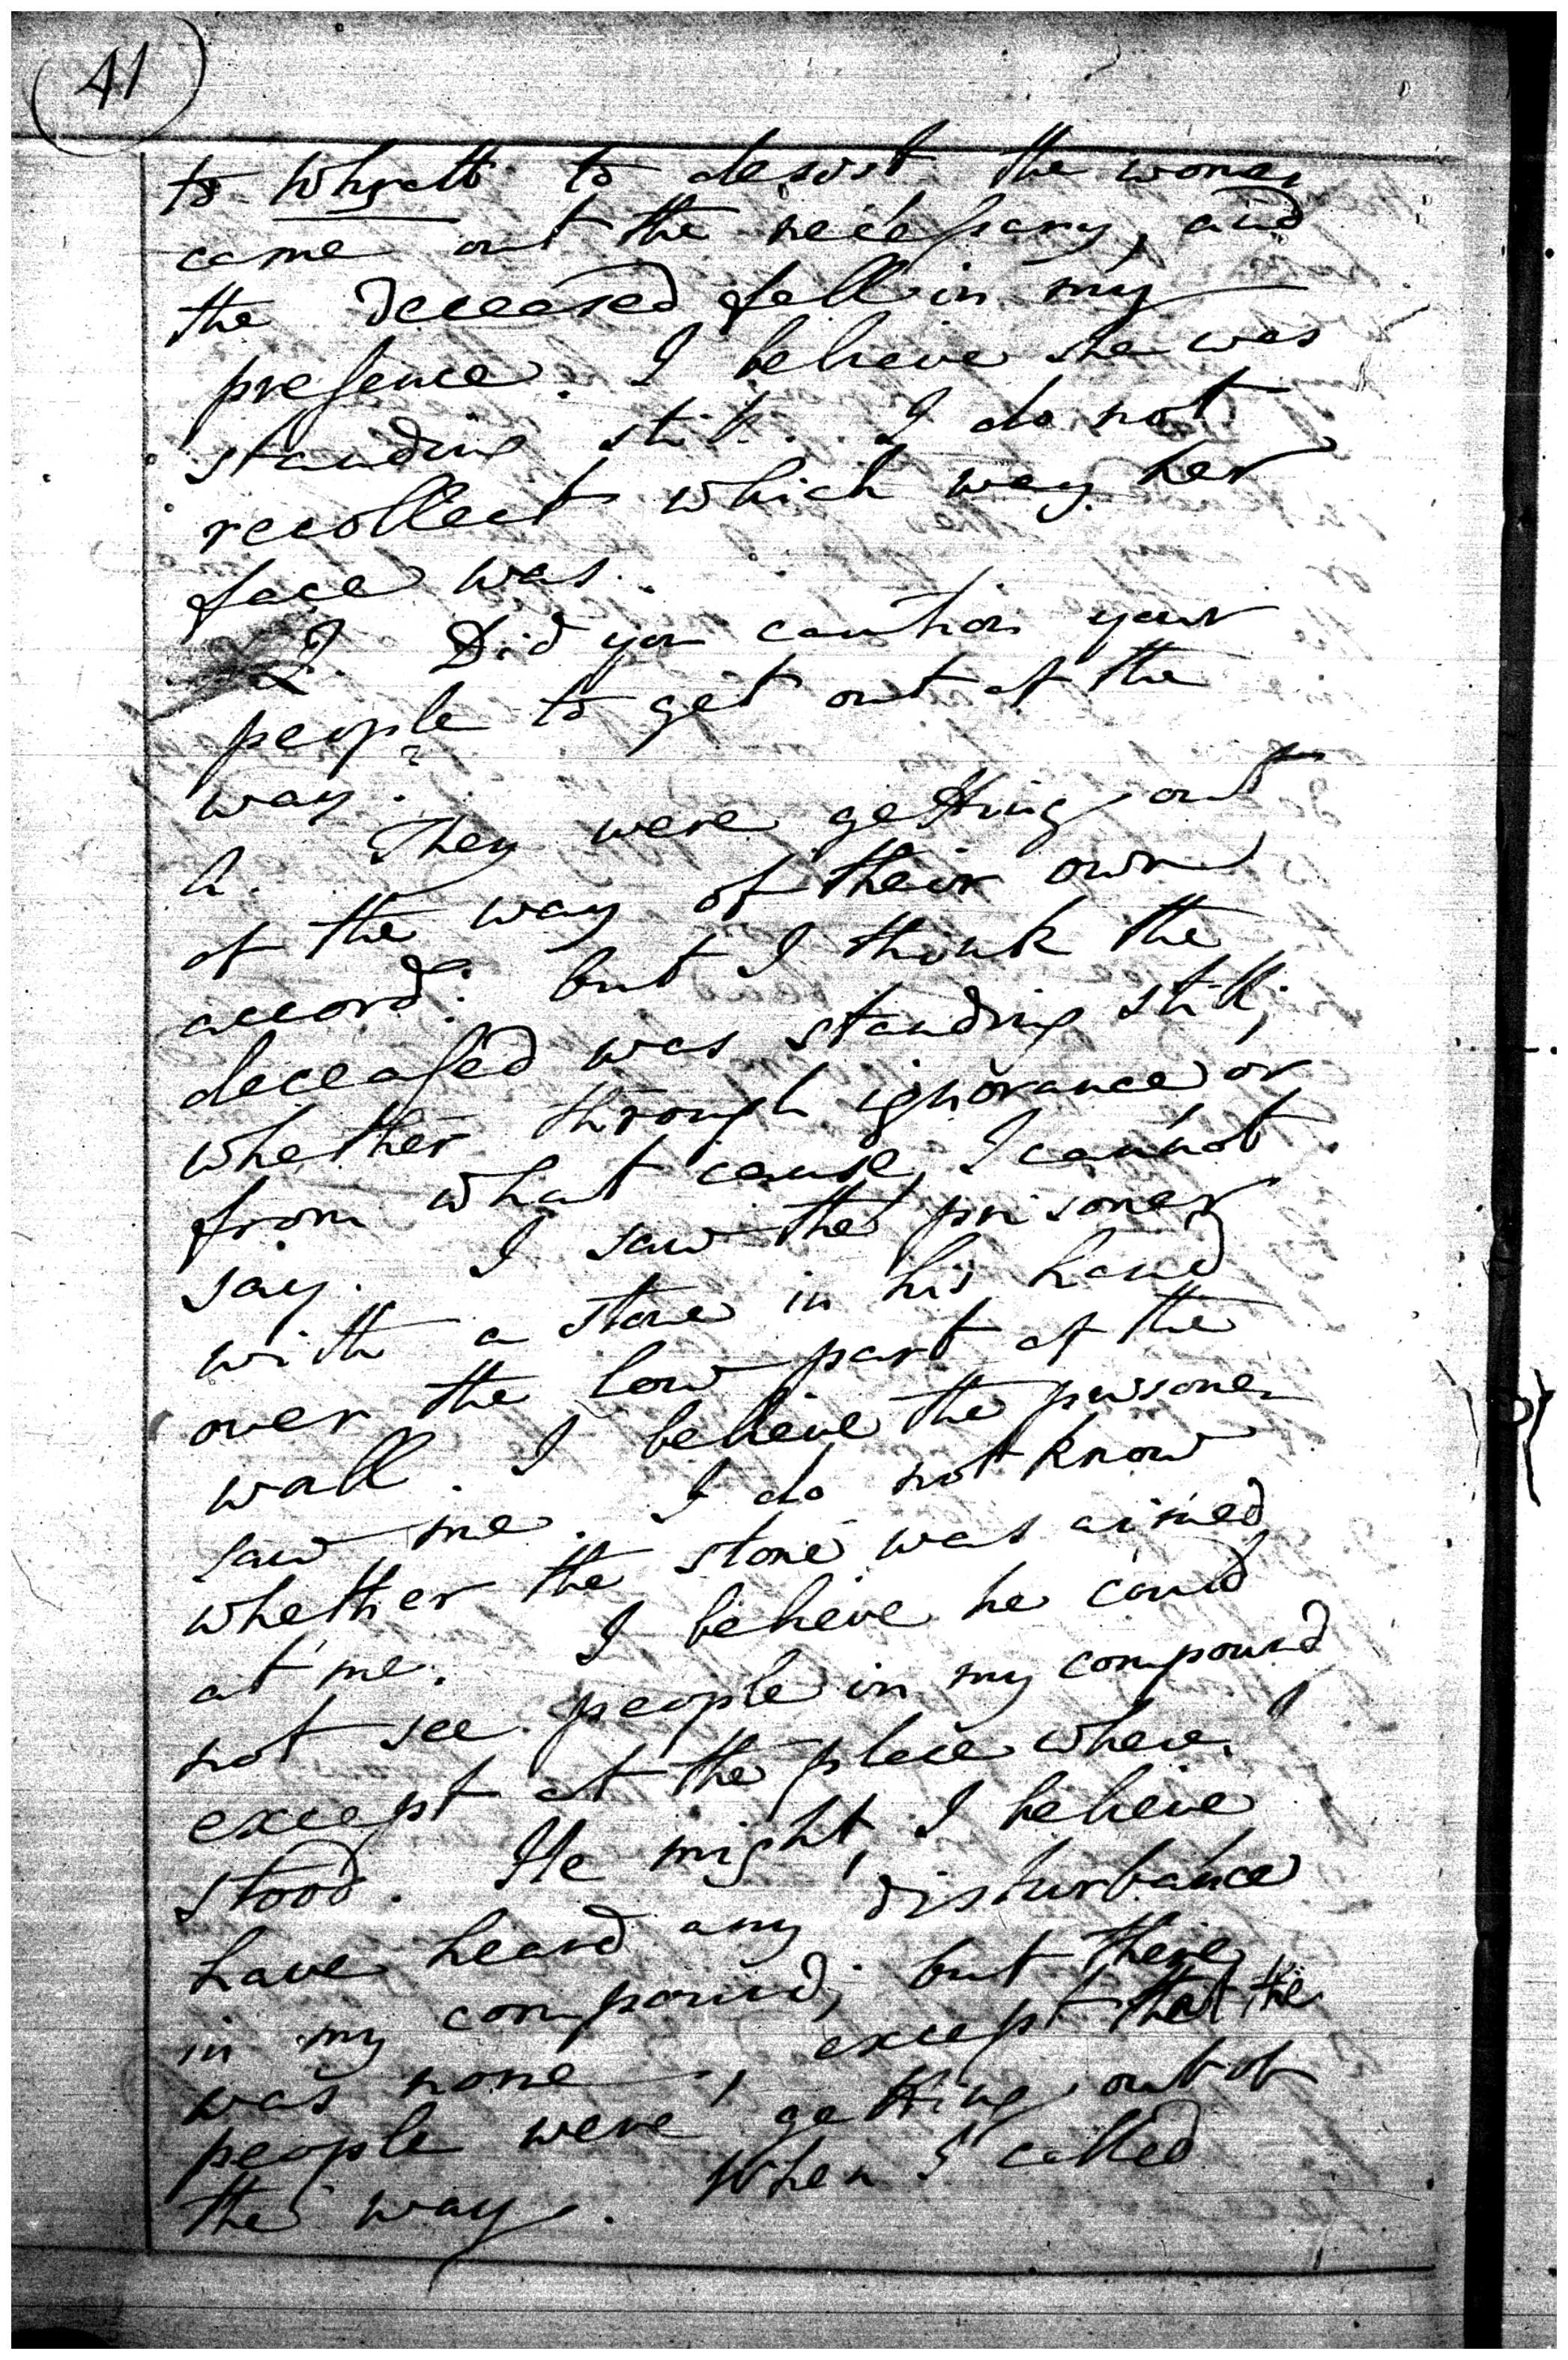 41
to Whyatt to desist the women
came out the necessary, and
the deceased fell in my
presence. I believe she was
standing still. I do not
recollect which way her
face was.
Q. Did you caution your
people to get out of the
way?
A. They were getting out
of the way of their own
accord: but I think the
deceased was standing still;
whether through ignorance or
from what cause, I cannot
say. I saw the prisoner
with a stone in his hand
over the low part of the
wall. I believe the prisoner
saw me. I do not know
whether the stone was aimed
at me. I believe he could
not see people in my compound
except at the place where I
stood. He might, I believe
have heard any disturbance
in my compound; but there
was none, except that the
people were getting out of
the way. When I called